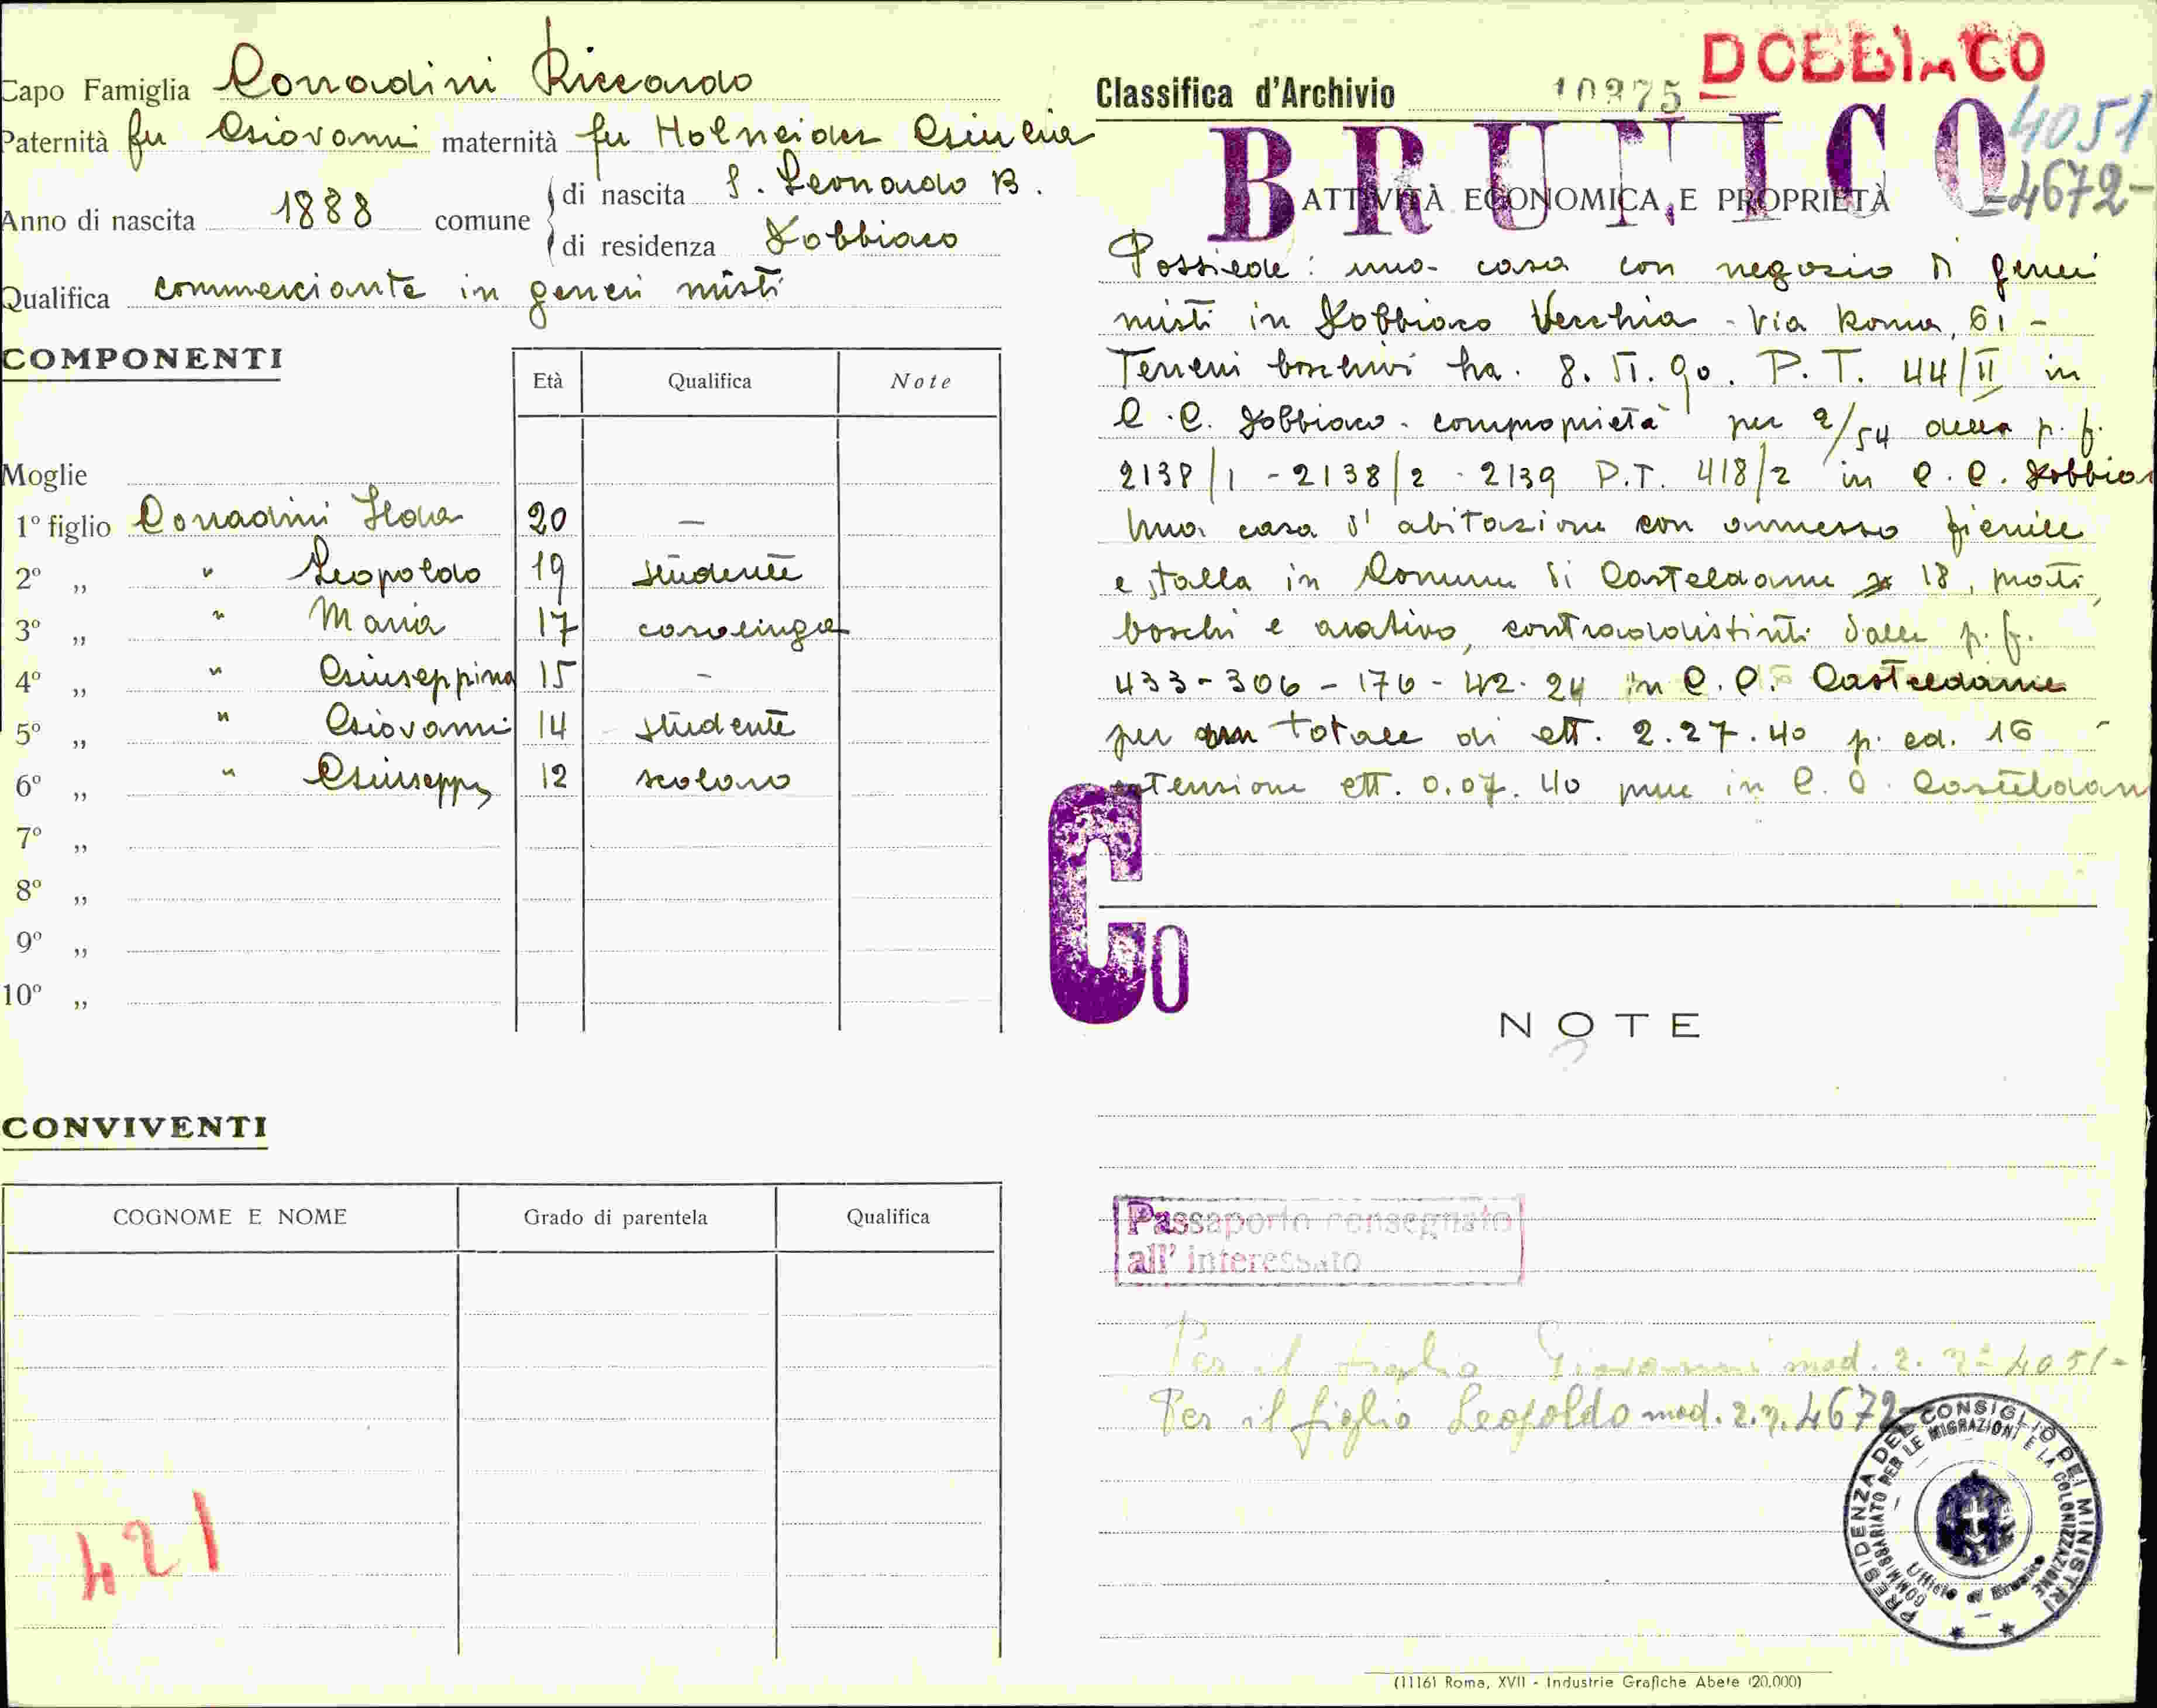 Capo Famiglia Corradini Riccardo
Paternità fu Giovanni maternità fu Holneider Giulia
Anno di nascita 1888 comune di nascita S. Leonardo B.
di residenza Dobbiaco
Qualifica commerciante in generi misti
COMPONENTI
Età Qualifica Note
Moglie
1º figlio Corradini Ilda 20 —
2º „ " Leopoldo 19 studente
3º „ " Maria 17 casalinga
4º „ " Giuseppina 15 -
5º „ " Giovanni 14 studente
6º „ " Giuseppe 12 scolaro
7º „
8º „
9º „
10º „
CONVIVENTI
COGNOME E NOME Grado di parentela Qualifica
421
DOBBIACO
Classifica d'Archivio 10375
BRUNICO
4051
=4672-
ATTIVITÀ ECONOMICA E PROPRIETÀ
Possiede: una casa con negozio di generi
misti in Dobbiaco Vecchia - Via Roma, 61 -
Terreni boschivi ha. 8. 51. 90. P.T. 44/II in
C.C. Dobbiaco - comproprietà per 2/54 della p.f.
2138/1 - 2138/2 - 2139 P.T. 418/2 in C.C. Dobbia
Una casa d'abitazione con annesso fienile
e stalla in Comune di Casteldarne 18, prati,
boschi e arativo, contraddistinti dalle p.f.
433-306-176-42-24 in C.C. Casteldarne
per un totale di ett. 2.27.40 p. ed. 16
estensione ett. 0.07.40 pure in C.C. Casteldarn
Co
NOTE
Passaporto consegnato
all' interessato
Per il figlio Giovanni mod. 2. nº 4051-
Per il figlio Leopoldo mod. 2. n. 4672-
PRESIDENZA DEL CONSIGLIO DEI MINISTRI
COMMISSARIATO PER LE MIGRAZIONI E LA COLONIZZAZIONE
Ufficio di Brunico
(11161 Roma, XVII - Industrie Grafiche Abete (20.000)